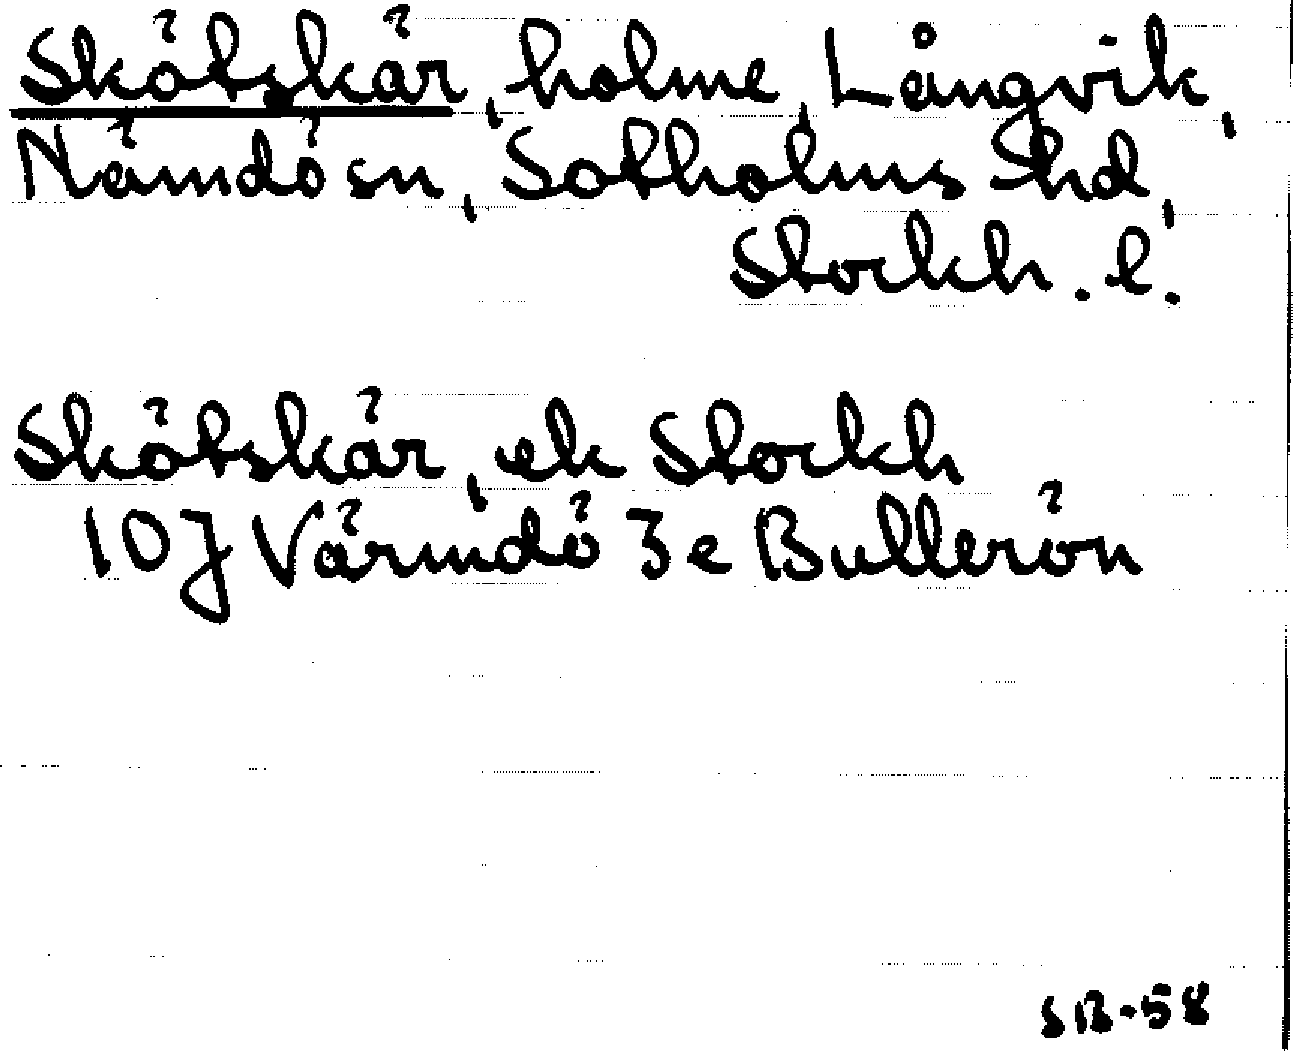 Skötskär, holme, Långvik,
Nämdö sn, Sotholms Shd,
Stockh. l.
Skötskär, ek Stockh
10J Värmdö 3e Bullerön
SB-58